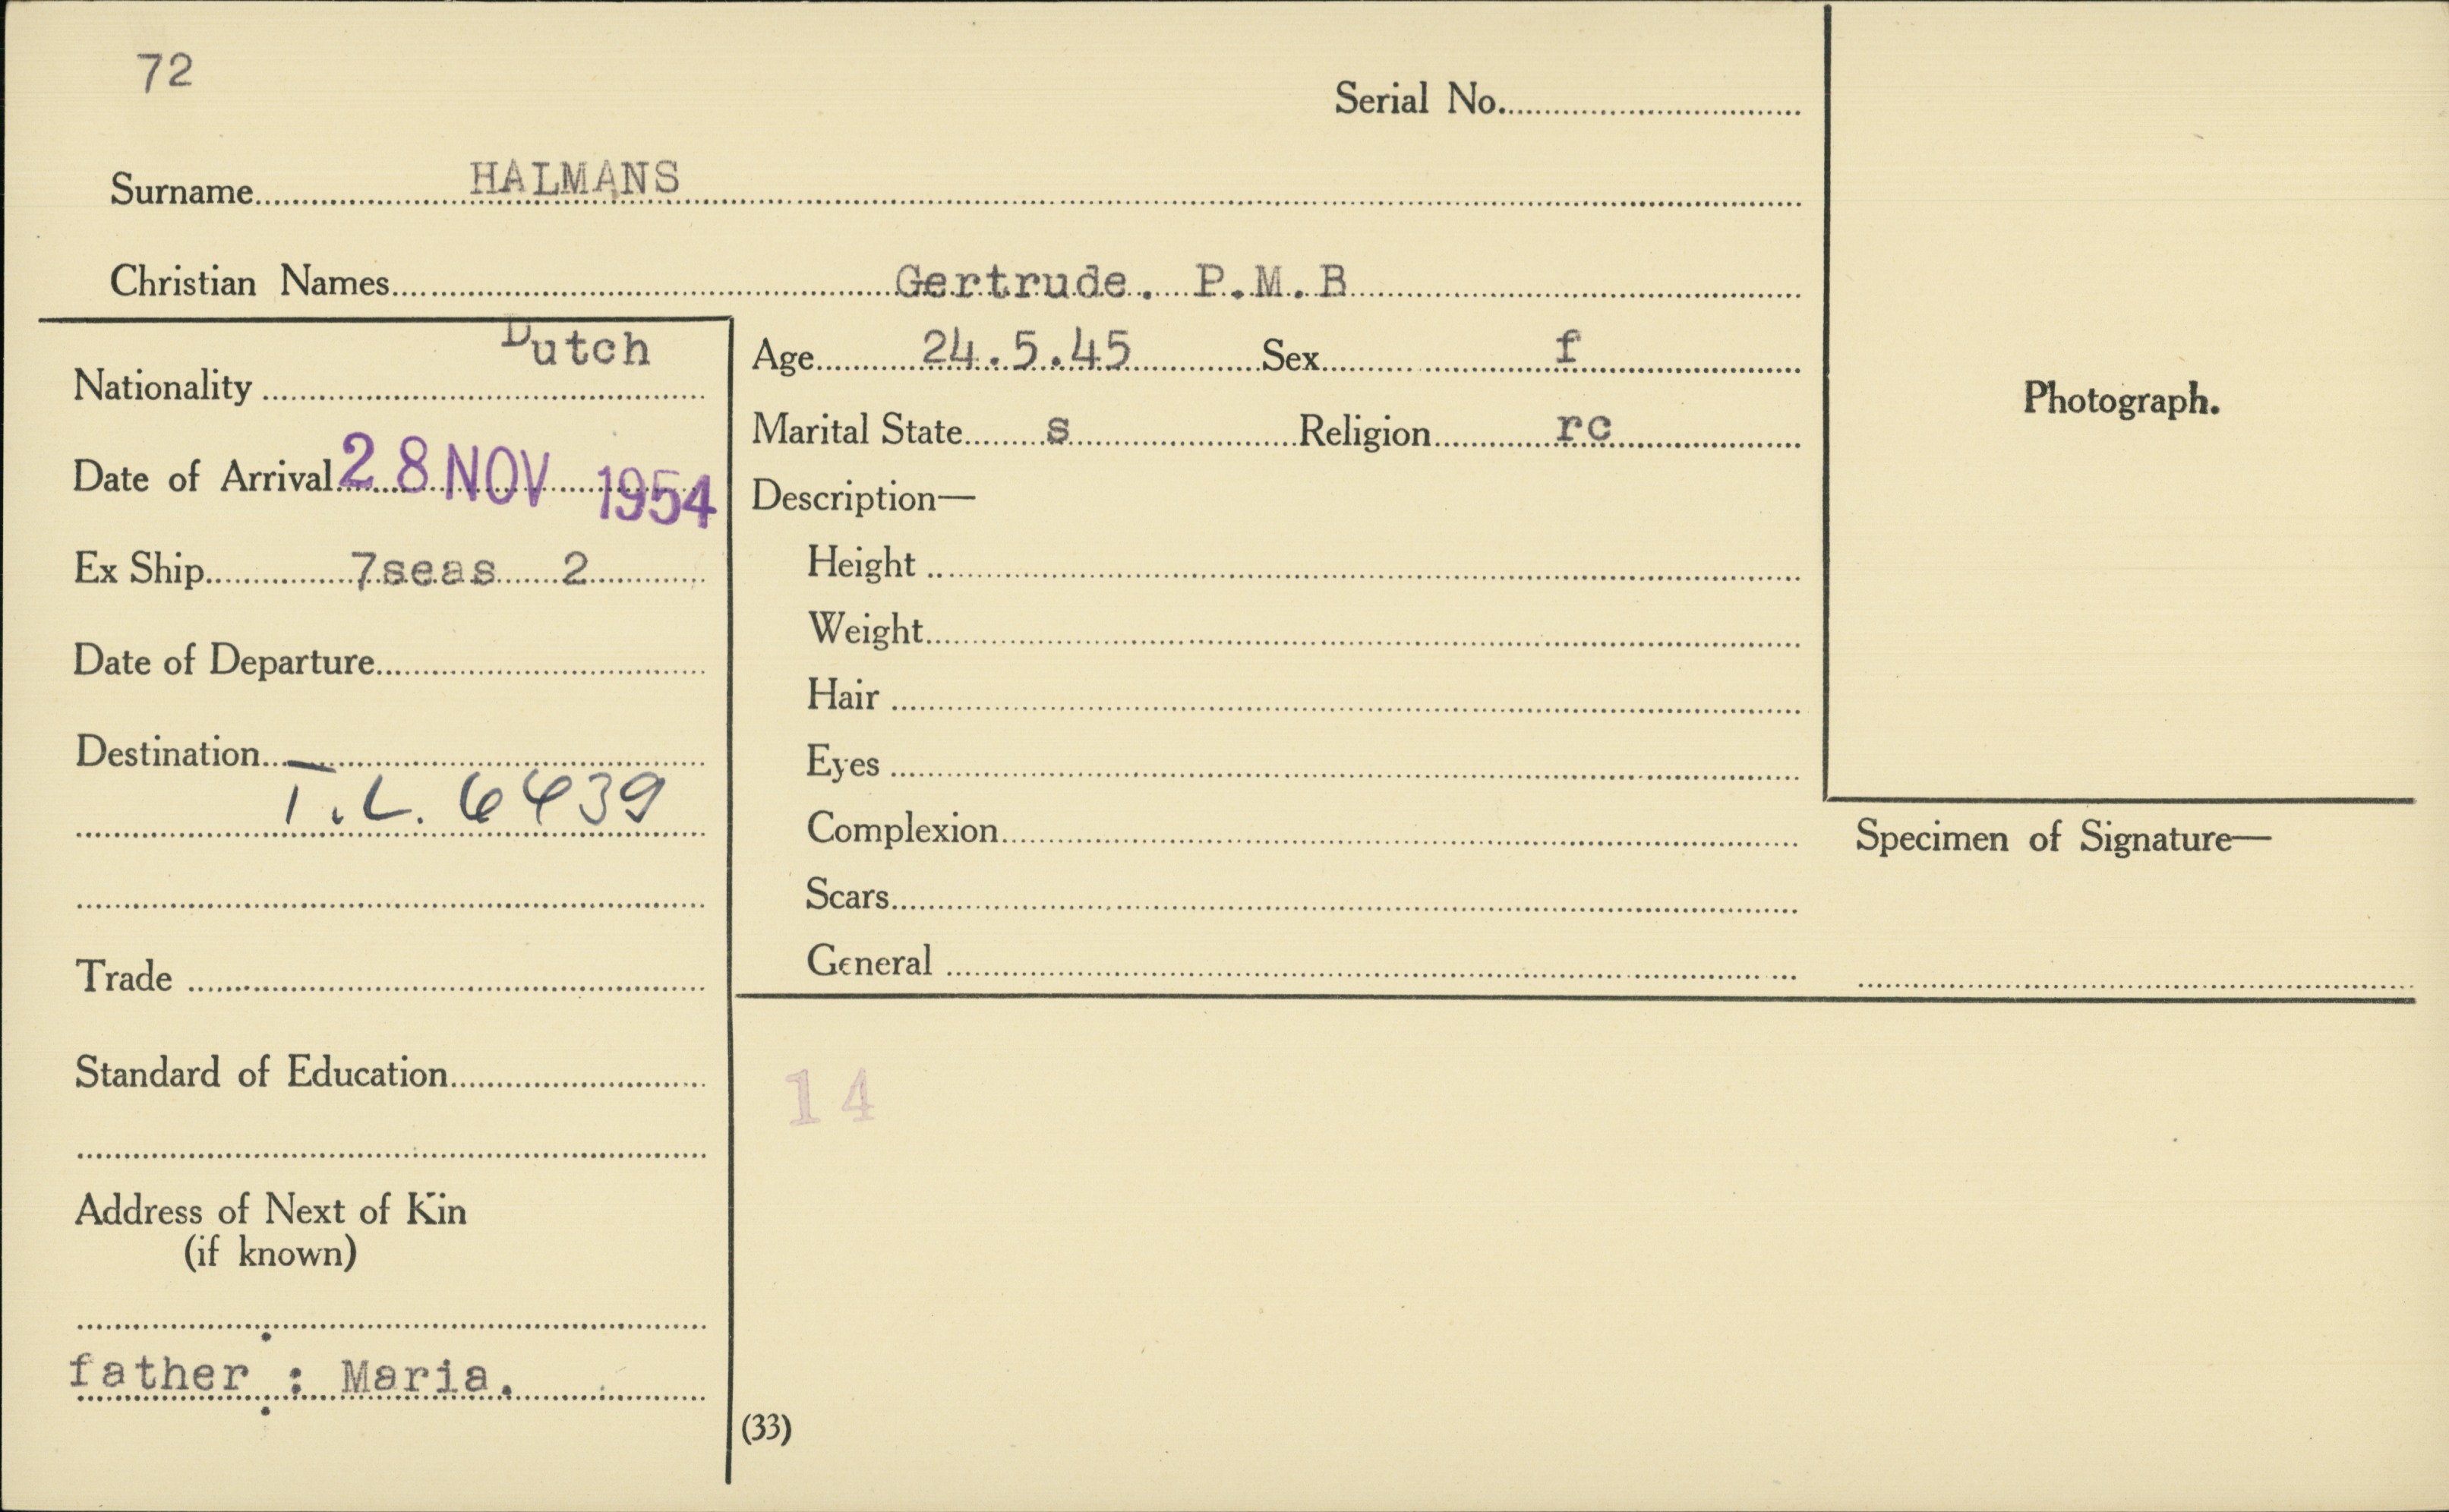 72
Serial No.
Surname HALMANS
Christian Names Gertrude. P.M.B
Nationality Dutch
Date of Arrival 28 NOV 1954
Ex Ship 7seas 2
Date of Departure
Destination
T.L. 6439
Trade
Standard of Education
Address of Next of Kin
(if known)
father : Maria.
Age 24.5.45 Sex f
Marital State s Religion rc
Description—
Height
Weight
Hair
Eyes
Complexion
Scars
General
Photograph.
Specimen of Signature—
14
(33)